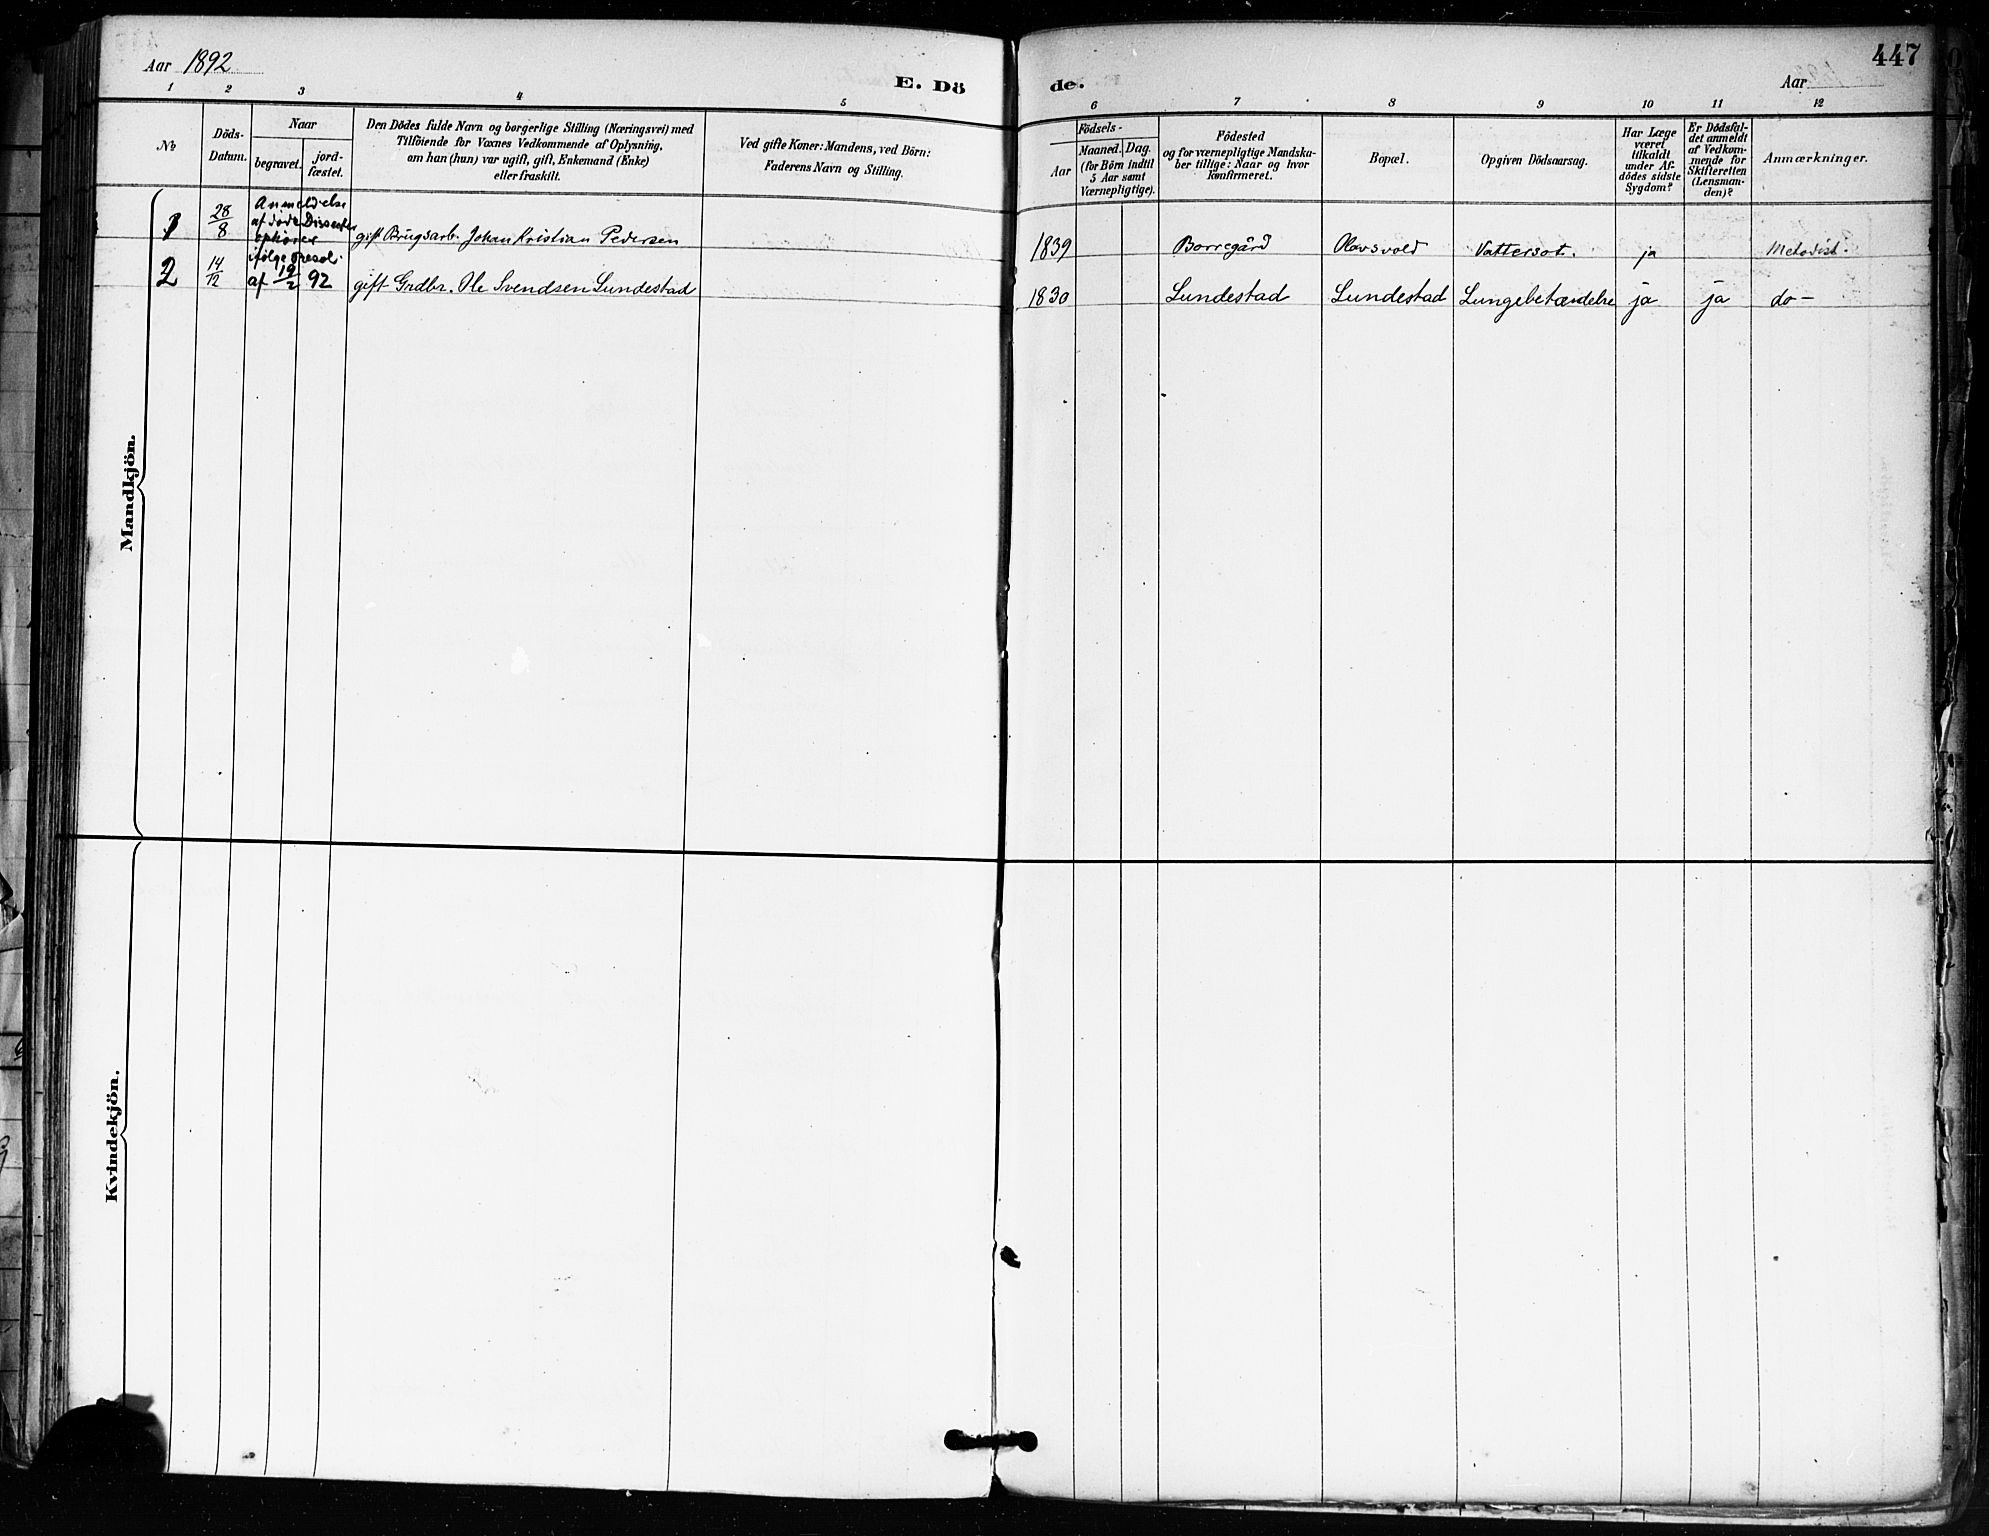 Aar 1892
E. Dö
de.
Aar
447
1 2 3 4 5
6 7 8 9 10 11 12
No
Döds-
Datum.
Naar
begravet.
jord-
fæstet.
Den Dödes fulde Navn og borgerlige Stilling (Næringsvei) med
Tilföiende for Voxnes Vedkommende af Oplysning,
om han (hun) var ugift, gift, Enkemand (Enke)
eller fraskilt.
Ved gifte Koner: Mandens, ved Börn:
Faderens Navn og Stilling.
Födsels-
Aar
Maaned. Dag.
(for Börn indtil
5 Aar samt
Værnepligtige).
Födested
og for værnepligtige Mandska-
ber tillige: Naar og hvor
Konfirmeret.
Bopæl.
Opgiven Dödsaarsag.
Har Læge
været
tilkaldt
under Af-
dödes sidste
Sygdom?
Er Dödsfal-
det anmeldt
af Vedkom-
mende for
Skifteretten
(Lensman-
den)?
Anmærkninger.
Mandkjön.
Anmeldelse
af döde Dissenter
ophører
ifølge resol.
af 19/2 92
1 28/8 gift Brugsarb. Johan Kristian Pedersen 1839 Borregård Olavsvold Vattersot. ja Metodist.
2 14/12 gift Grdbr. Ole Svendsen Lundestad 1830 Lundestad Lundestad Lungebetændelse ja ja do —
Kvindekjön.